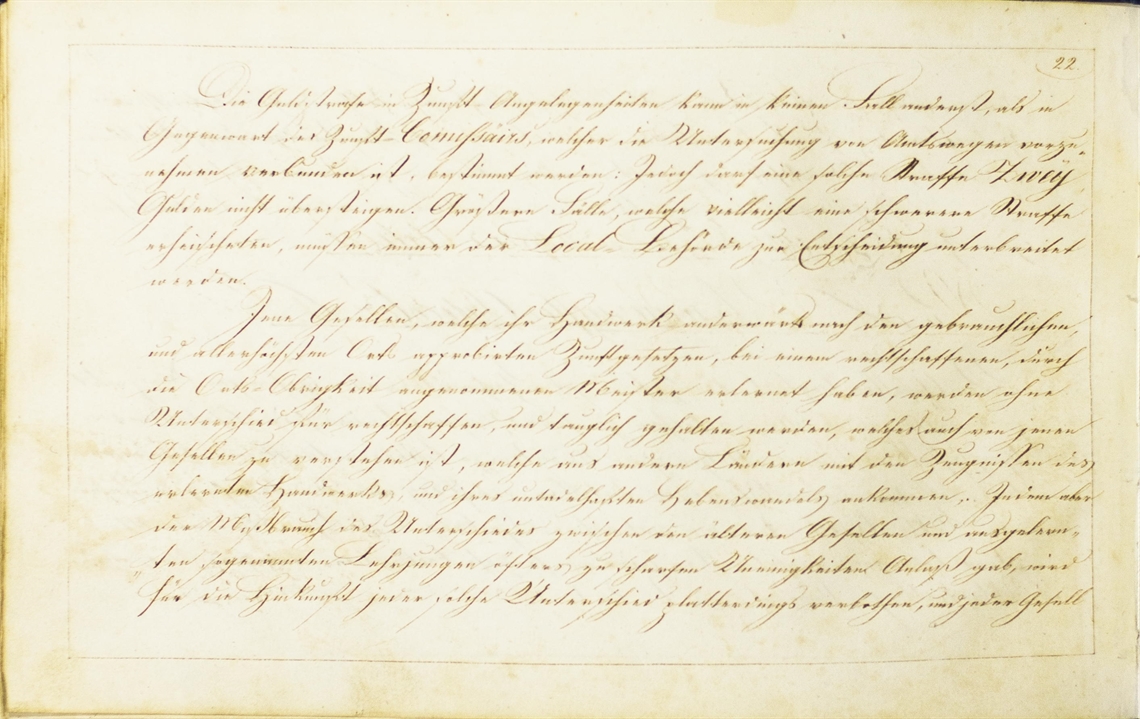 22
Die Geldstrafe in Zunft-Angelegenheiten kann in keinem Fall anderst, als in
Gegenwart des Zunft-Comissairs, welcher die Untersuchung von Amtswegen vorzu-
nehmen verbunden ist, bestimmt werden: Jedoch darf eine solche Straffe Zwey
Gulden nicht übersteigen. Größere Fälle, welche vielleicht eine schwerere Straffe
erheischeten, müssen immer der Local-Behörde zur Entscheidung unterbreitet
werden.
Jene Gesellen, welche ihr Handwerk anderwärts nach den gebrauchlichen,
und allerhöchsten Orts approbirten Zunftgesetzen, bei einem rechtschaffenen, durch
die Orts-Obrigkeit angenommenen Meister erlernet haben, werden ohne
Unterschied für rechtschaffen, und tauglich gehalten werden, welches auch von jenen
Gesellen zu verstehen ist, welche aus andern Ländern mit den Zeugnissen des
erlernten Handwerks, und ihres untadelhaften Lebenswandels ankommen. Indem aber
der Mißbrauch des Unterschiedes zwischen den älteren Gesellen und ausgelern-
ten sogenannten Lehrjungen öfters zu scharfen Uneinigkeiten Anlaß gab, wird
für die Hinkunft jeder solche Unterschied platterdings verbothen, und jeder Gesell